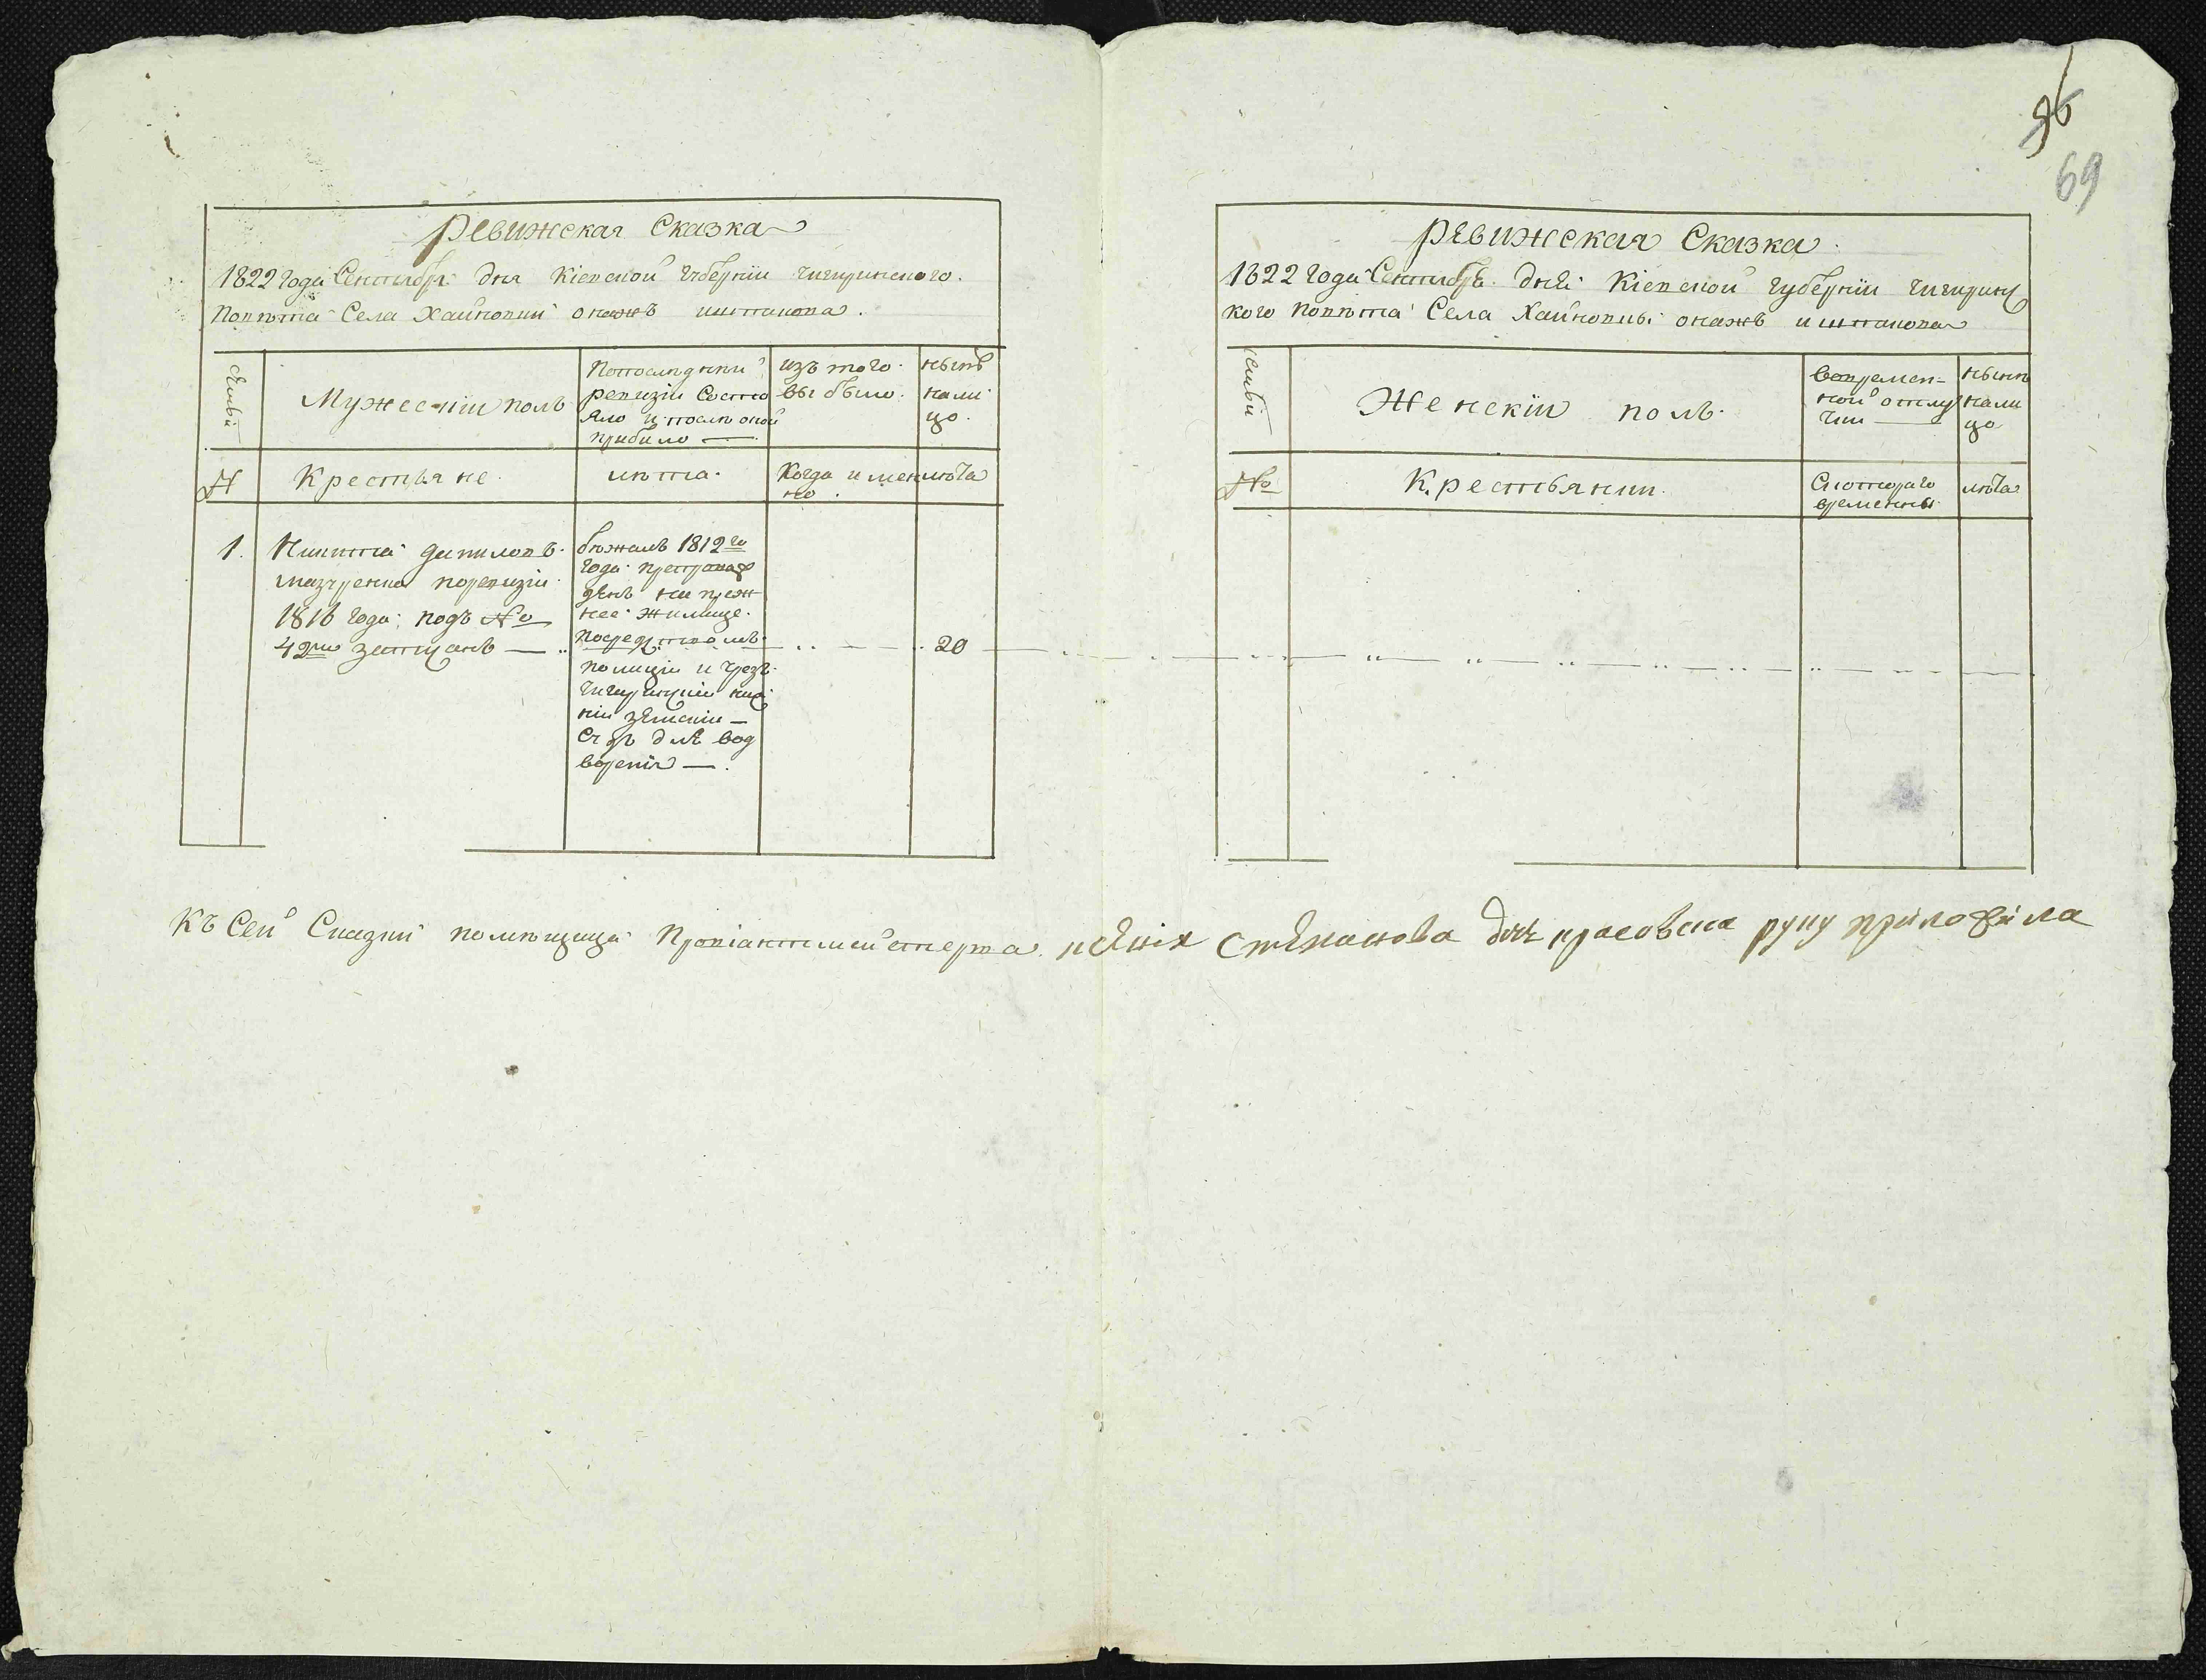 36
69
Ревижская Сказка
1822 года Сентябрь дня Кіевской губерніи чигиринского
Повѣта Села Хайновки
семьи
Мужескій полъ
Попослѣдней
ревизіи Состо
яло и послѣ оной
прибило —
изъ того
выбыло
нынѣ
нали
цо
№
Крестьяне
лѣта
Когда имен
но
лѣта
1.
Никита Даниловъ
Мазуренко поревизіи
1816 года подъ №
42мъ записанъ —
бѣжалъ 1812го
года
денъ на преж
нее жилище
посредствомъ
полиціи и чрезъ
чигиринскій ниж
ній земскій —
Судъ для вод
воренія —
20
Ревижская Сказка
1822 года Сентябрь дня Кіевской губерніи чигиринс
кого Повѣта Села Хайновки
семьи
Женскій полъ
вовремен-
ной отлу
чки —
нынѣ
нали
цо
№
Крестьянки
Скотораго
времены
лѣта
Къ Сей Сказки помѣщица Провіантмейстерша Ксенія Степанова дочь красовска руку приложила